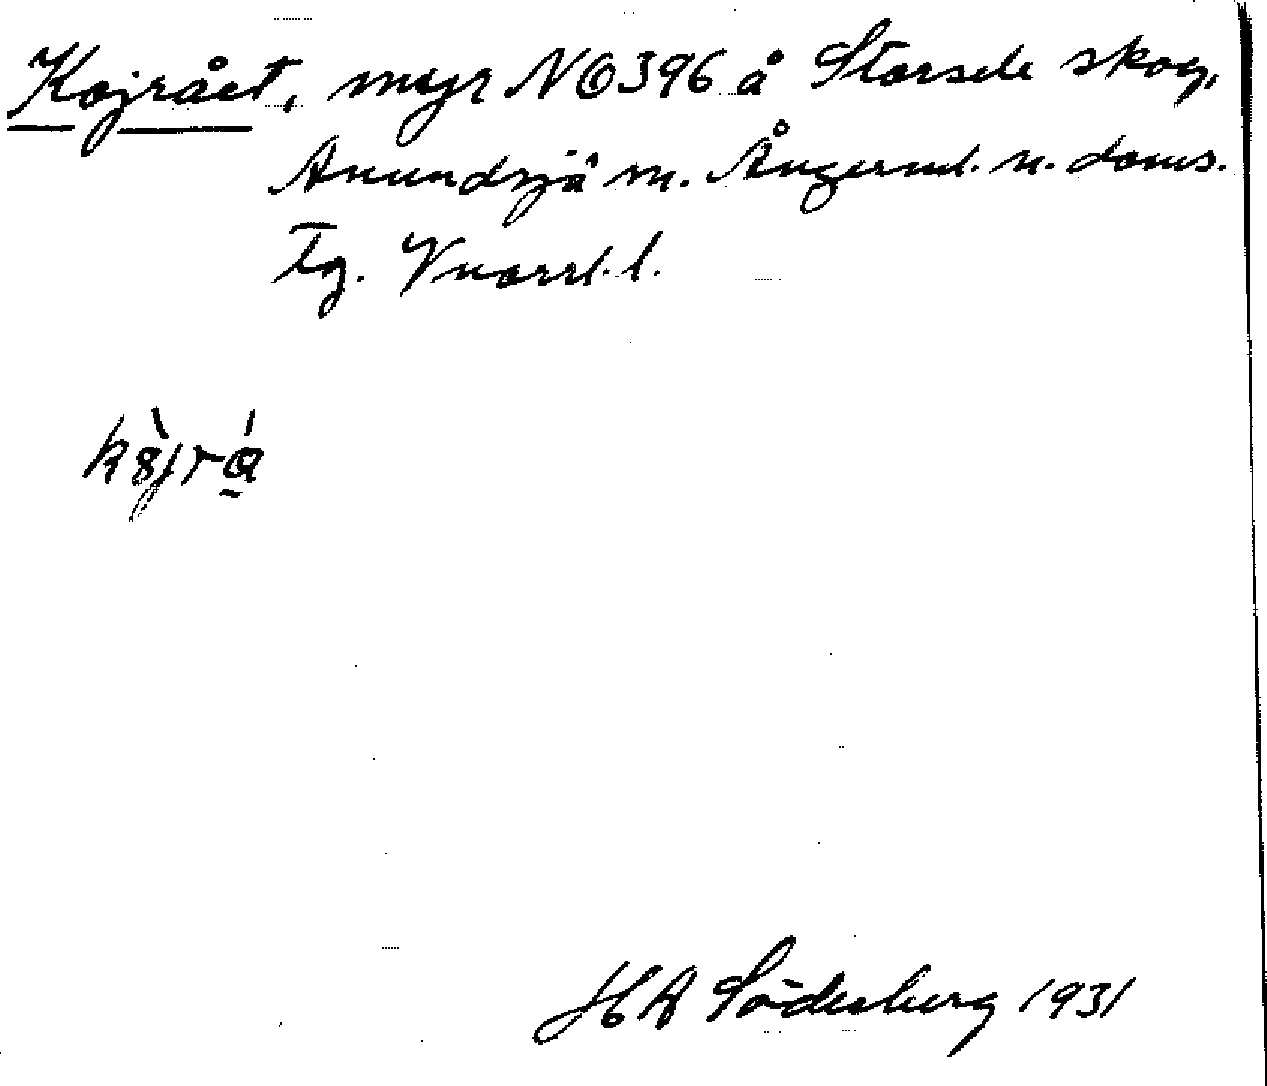 Kojrået, myr NO 396 å Storsele skog,
Anundsjö sn. Ångerml. n. doms.
Tg. Vnorrl. l.
HA Söderberg 1931